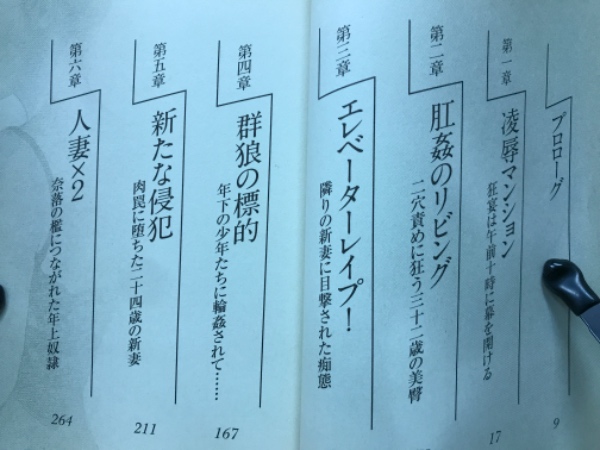 プロローグ
9
第一章
凌辱マンション
狂宴は午前十時に幕を開ける
17
第二章
肛姦のリビング
二穴責めに狂う三十二歳の美臀
第三章
エレベーターレイプ!
隣りの新妻に目撃された痴態
第四章
群狼の標的
年下の少年たちに輪姦されて……
167
第五章
新たな侵犯
肉罠に堕ちた二十四歳の新妻
211
第六章
人妻×2
奈落の檻につながれた年上奴隷
264